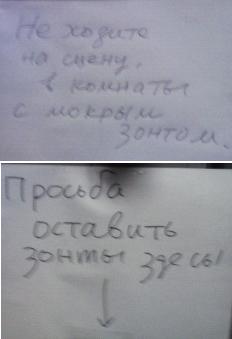 Не ходите
на сцену,
в комнаты
с мокрым
зонтом.
Просьба
оставить
зонты здесь!